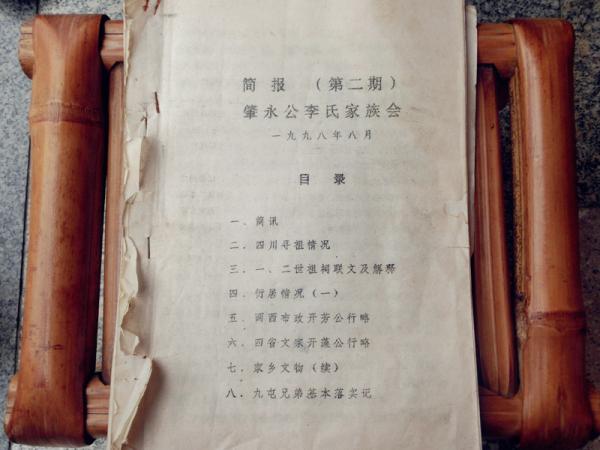 简报 （第二期）
肇永公李氏家族会
一九九八年八月
目录
一、简讯
二、四川寻祖情况
三、一、二世祖祠联文及解释
四、衍居情况（一）
五、两西布政开芳公行略
六、四省文宗开藻公行略
七、家乡文物（续）
八、九屯兄弟基本落实记